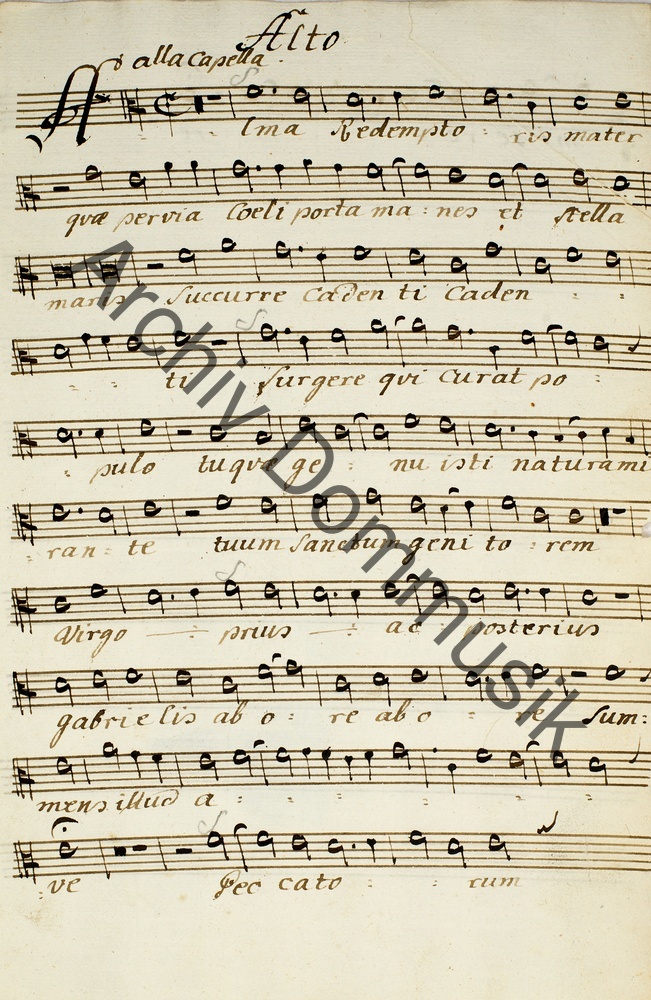 Alto
alla Capella
Alma Redempto - ris mater
quæ pervia Coeli porta ma : nes et stella
maris Succurre Caden ti Caden - -
- - ti Surgere qui Curat po :
- pulo tu quæ ge : nu isti natura mi
ran - te tuum Sanctum geni to : rem
Virgo — prius — : ac posterius
gabrie lis ab o : re ab o - re Sum:
mens illud a : - - -
ve Pec cato : - rum
Archiv Dommusik